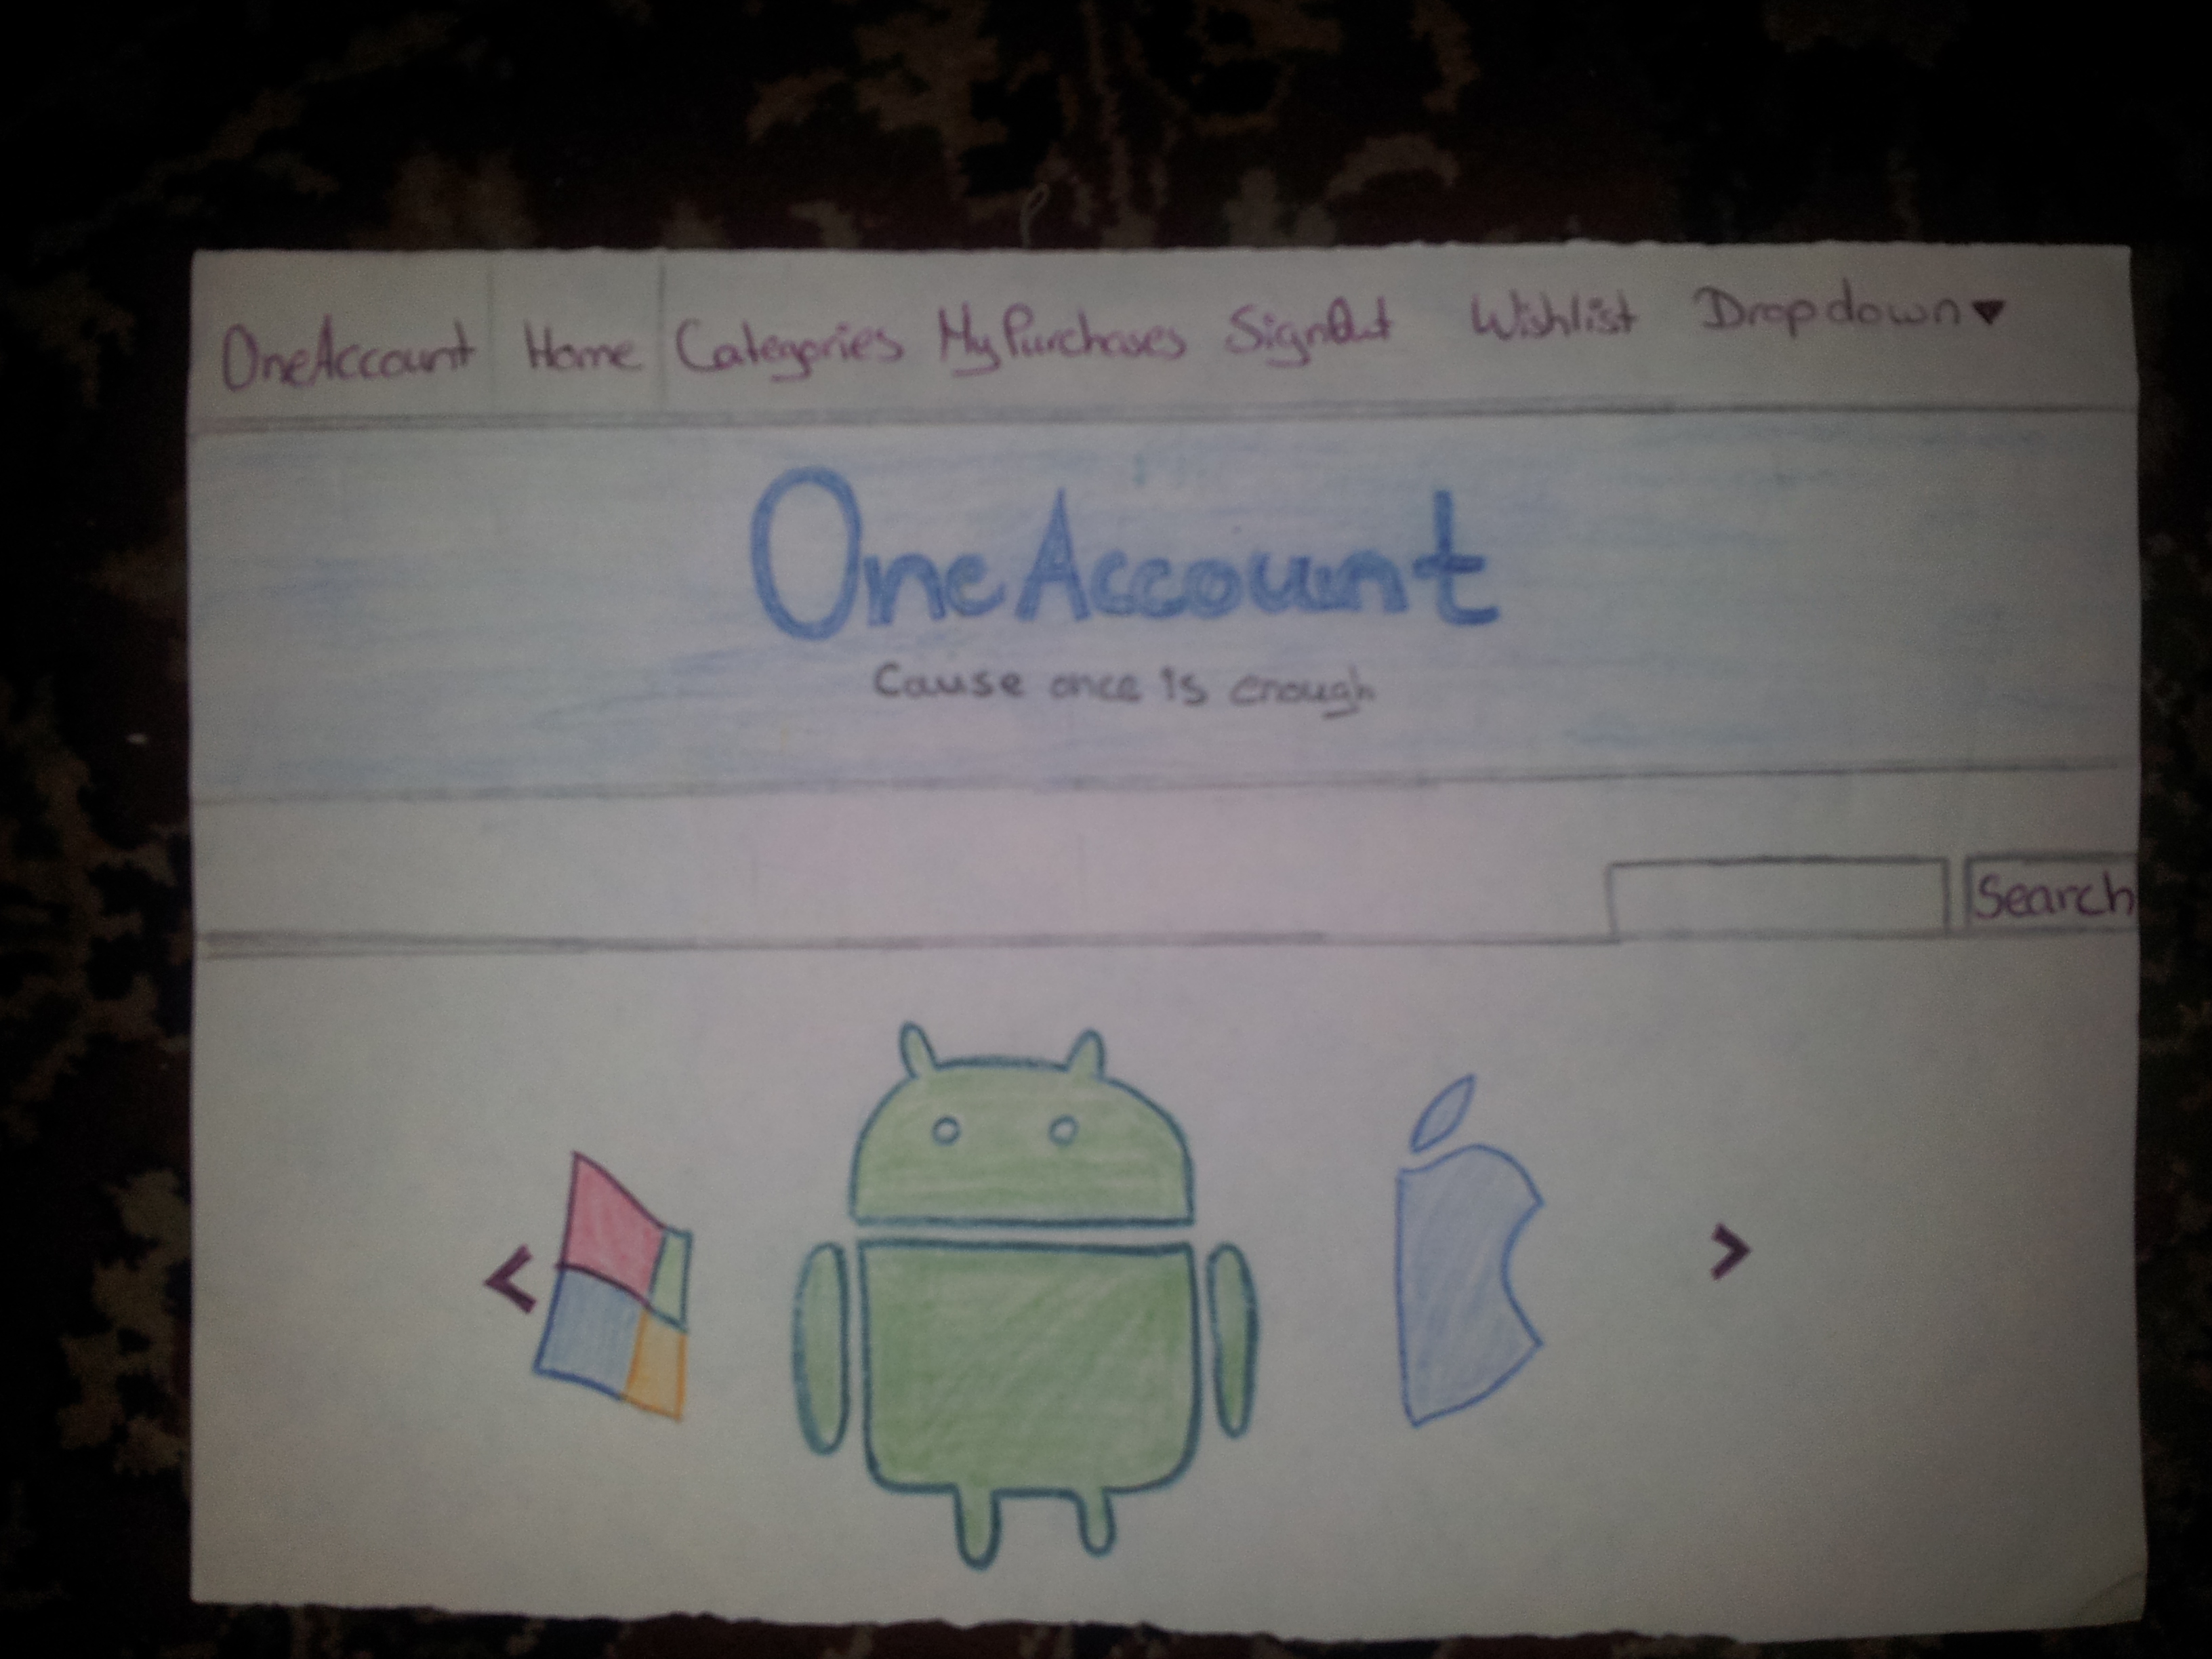 OneAccount Home Categories MyPurchases SignOut Wishlist Dropdown▼
OneAccount
Cause once is enough
Search
<
>